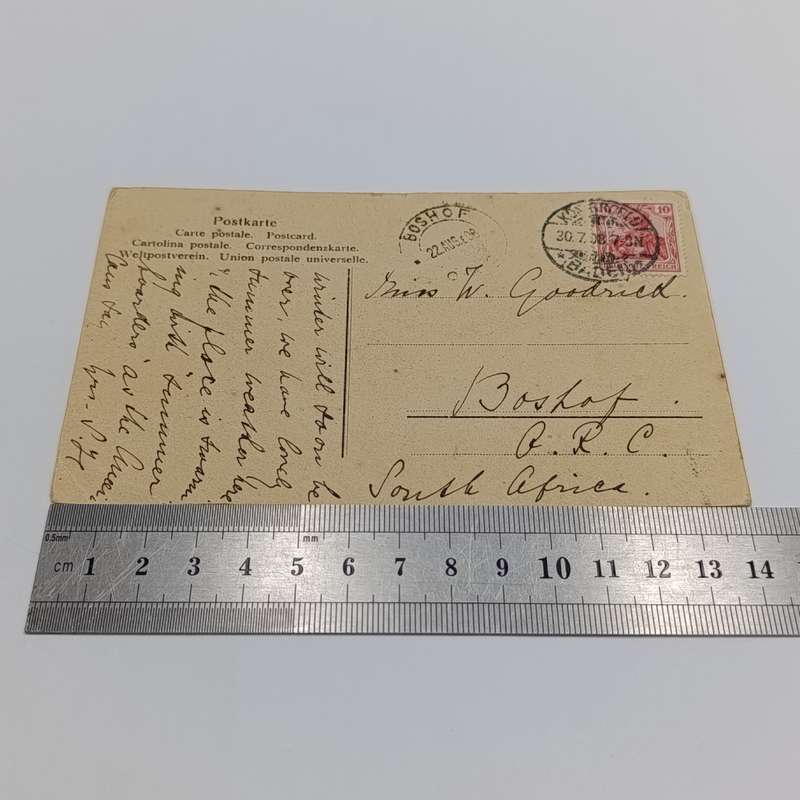 Postkarte
Carte postale. Postcard.
Cartolina postale. Correspondenzkarte.
Weltpostverein. Union postale universelle.
BOSHOF
22. AUG. 08
10
REICH
30.7.08. 7-8N
BADEN
Miss W. Goodrick.
Boshof.
O. R. C.
South Africa.
Winter will soon be
over, we have lovely
summer weather here
& the place is swarm
ing with summer
boarders as the Amer
icans say
Yrs- S.H
0.5mm mm
cm 1 2 3 4 5 6 7 8 9 10 11 12 13 14